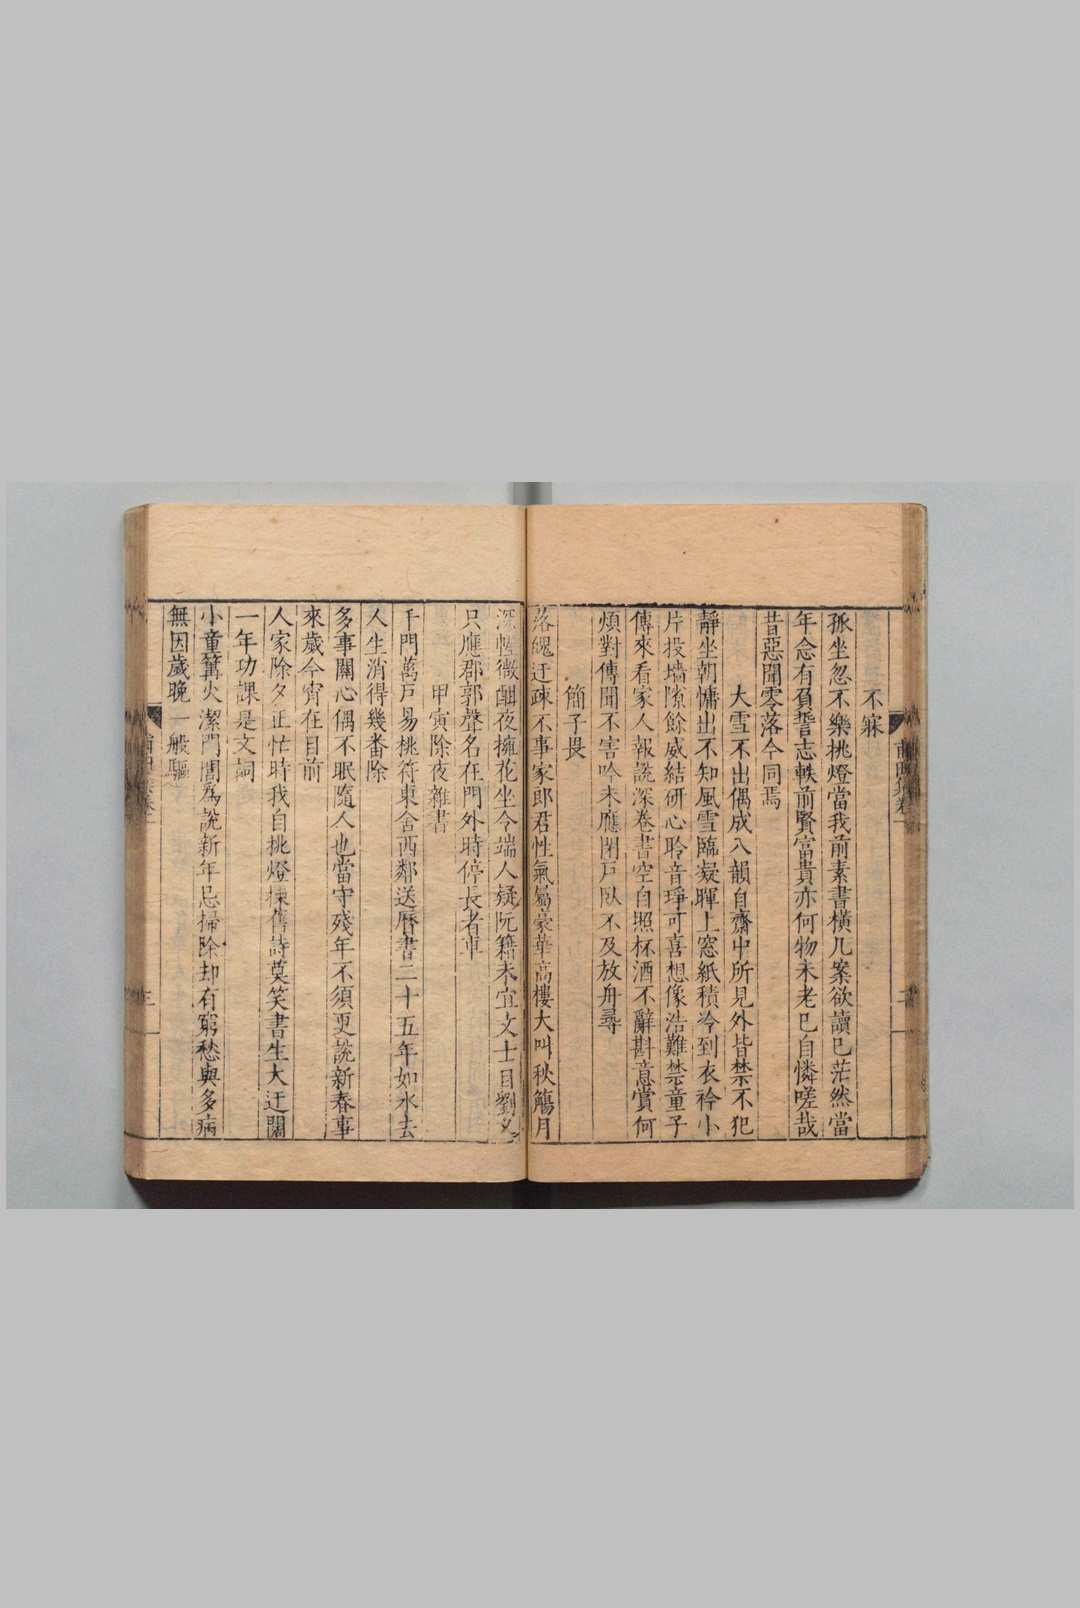 不寐
孤坐忽不樂挑燈當我前素書橫几案欲讀已茫然當
年念有負誓志軼前賢富貴亦何物未老已自憐嗟哉
昔惡聞零落今同焉
大雪不出偶成八韻自齋中所見外皆禁不犯
靜坐朝慵出不知風雪臨凝暉上窓紙積冷到衣衿小
片投墙隙餘威結研心聆音琤可喜想像浩難禁童子
傳來看家人報說深卷書空自照杯酒不辭斟意賞何
煩對傳聞不害吟未應閉戸臥不及放舟尋
簡子畏
落魄迂疎不事家郎君性氣屬豪華高樓大叫秋觴月
深幄微酣夜擁花坐令端人疑阮籍未宜文士目劉叉
只應郡郭聲名在門外時停長者車
甲寅除夜雜書
千門萬戸易桃符東舍西鄰送曆書二十五年如水去
人生消得幾番除
多事關心偶不眠隨人也當守殘年不須更說新春事
來歲今宵在目前
人家除夕正忙時我自挑燈揀舊詩莫笑書生太迂闊
一年功課是文詞
小童篝火潔門閭爲說新年忌掃除却有窮愁與多病
無因歲晚一般驅